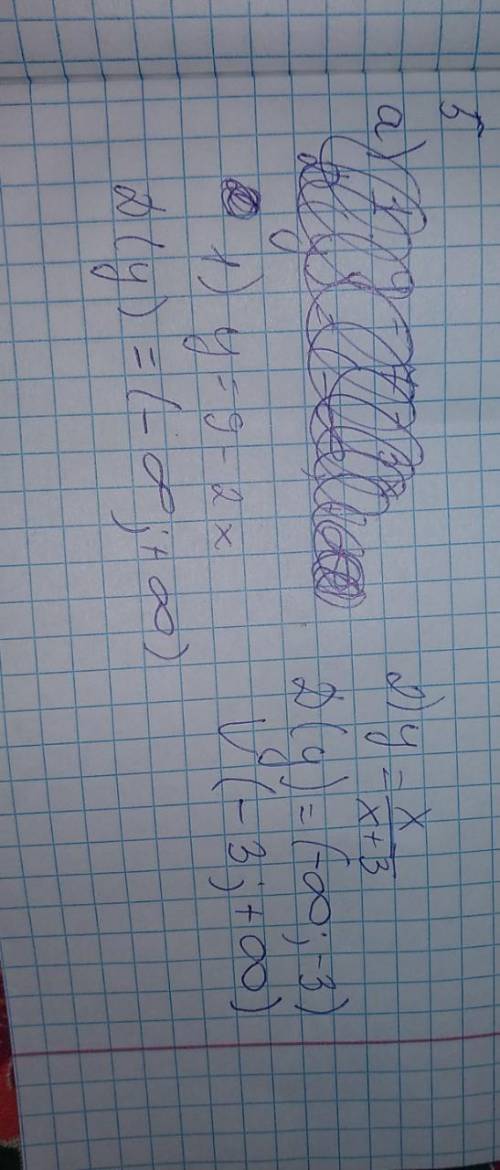 5
а)
1) y = 9 - 2x
D(y) = (-∞; +∞)
2) y = x/(x+3)
D(y) = (-∞; -3)
∪(-3; +∞)